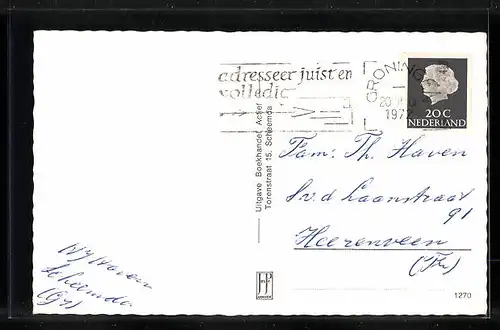 adresseer juist en
volledig
GRONINGEN
1972
20 C
NEDERLAND
Uitgave Boekhandel Actief
Torenstraat 15, Scheemda
Fam. Th. Haven
S.v.d Laanstraat
91
Heerenveen
(Fr)
Scheemda
(Gr)
1270